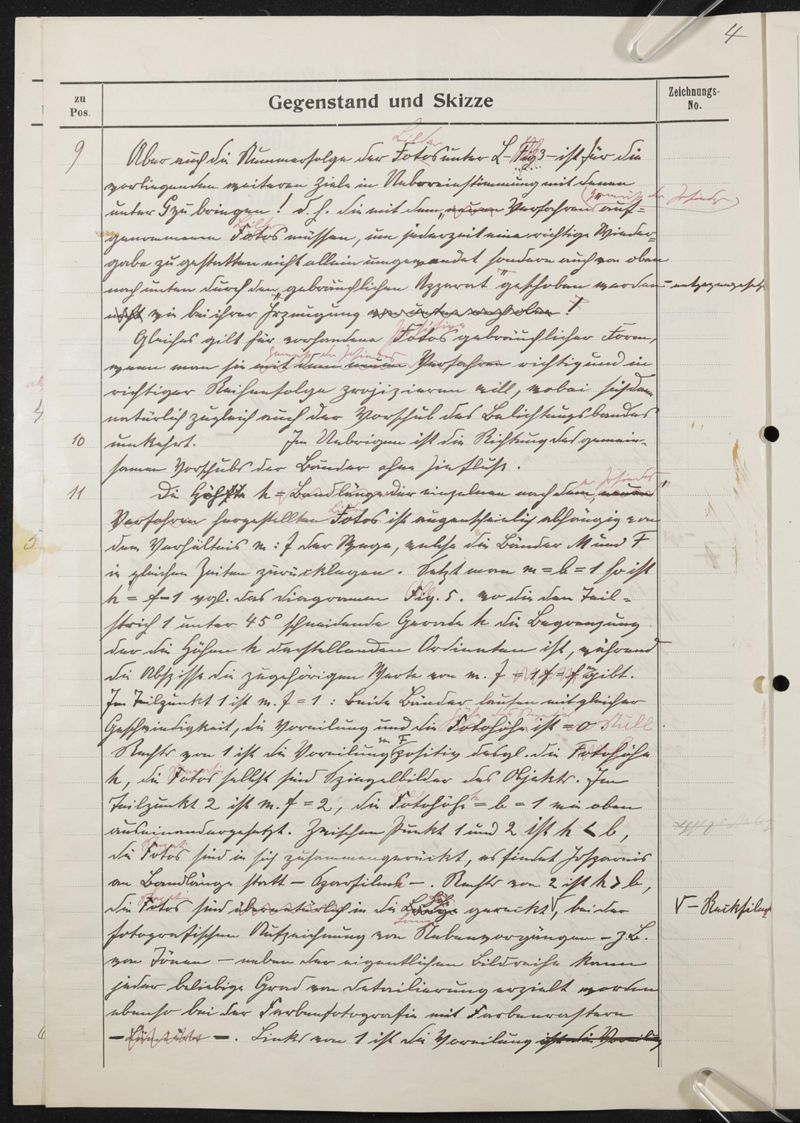 4
zu Pos.
Gegenstand und Skizze
Zeichnungs-No.
9 Aber auch die Nummerfolge der Fotos unter L-Fig 3 - ist für die
vorliegenden weiteren Ziele in Uebereinstimmung mit denen
unter G zu bringen! d. h. die mit dem „neuen Verfahren auf=
genommenen Fotos müssen, um jederzeit eine richtige Wieder-
gabe zu gestatten nicht allein umgewendet sondern auch von oben
nach unten durch den „gebräuchlichen Apparat" geschoben werden - entgegengesetzt
wie bei ihrer Erzeugung !
Gleiches gilt für vorhandene Fotos gebräuchlicher Form,
wenn man sie mit dem neuen Verfahren richtig und in
richtiger Reihenfolge projizieren will, wobei sich dann
natürlich zugleich auch der Vorschub des Belichtungsbandes
10 umkehrt. Im Uebrigen ist die Richtung des gemein-
samen Vorschubs der Bänder ohne Einfluss.
11 Die Höhe h = Bandlänge der einzelnen nach dem „neuen"
Verfahren hergestellten Fotos ist augenscheinlich abhängig von
dem Verhältnis m : f der Wege, welche die Bänder M und F
in gleichen Zeiten zurücklegen. Setzt man m = b = 1 so ist
h = f-1 vgl. das Diagramm Fig. 5. wo die den Teil-
strich 1 unter 45° schneidende Gerade h die Begrenzung
der die Höhen h darstellenden Ordinaten ist, während
die Abszisse die zugehörigen Werte von m. f gibt.
Im Teilpunkt 1 ist m. f = 1 : Beide Bänder laufen mit gleicher
Geschwindigkeit, die Voreilung und die Fotohöhe ist = 0 Null
Rechts von 1 ist die Voreilung positiv desgl. die Fotohöhe
h, die Fotos selbst sind Spiegelbilder des Objekts. Im
Teilpunkt 2 ist m. f = 2, die Fotohöhe = b = 1 wie oben
auseinandergesetzt. Zwischen Punkt 1 und 2 ist h < b,
die Fotos sind in sich zusammengerückt, es findet Ersparnis
an Bandlänge statt - Sparfilm -. Rechts von 2 ist h > b,
die Fotos sind übernatürlich in die Länge gereckt V, bei der V - Reckfilm
fotografischen Aufzeichnung von Nebenvorgängen - z. B.
von Tönen - neben der eigentlichen Bildreihe kann
jeder beliebige Grad von Detailierung erzielt werden
ebenso bei der Farbenfotografie mit Farbenrastern
-. Links von 1 ist die Voreilung ist die Voreilung